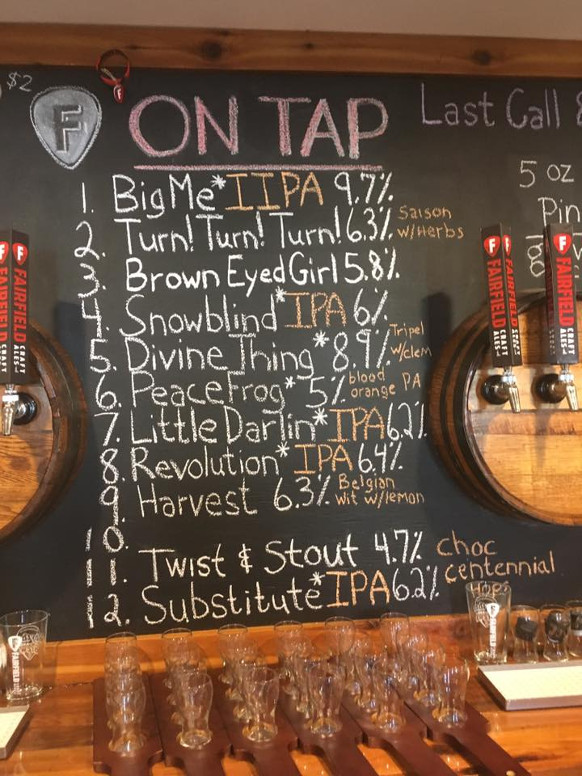 $2
F
ON TAP
Last Call
5 oz
Pin
1. Big Me* IIPA 9.7%
2. Turn! Turn! Turn! 6.3% Saison w/Herbs
3. Brown Eyed Girl 5.8%
4. Snowblind* IPA 6%
5. Divine Thing* 8.9% Tripel w/clem
6. Peace Frog* 5% blood orange PA
7. Little Darlin* IPA 6.2%
8. Revolution* IPA 6.4%
9. Harvest 6.3% Belgian wit w/lemon
10.
11. Twist & Stout 4.7% choc
12. Substitute* IPA 6.2% centennial Hops
F FAIRFIELD CRAFT ALES
F FAIRFIELD CRAFT ALES
F FAIRFIELD CRAFT ALES
F FAIRFIELD CRAFT ALES